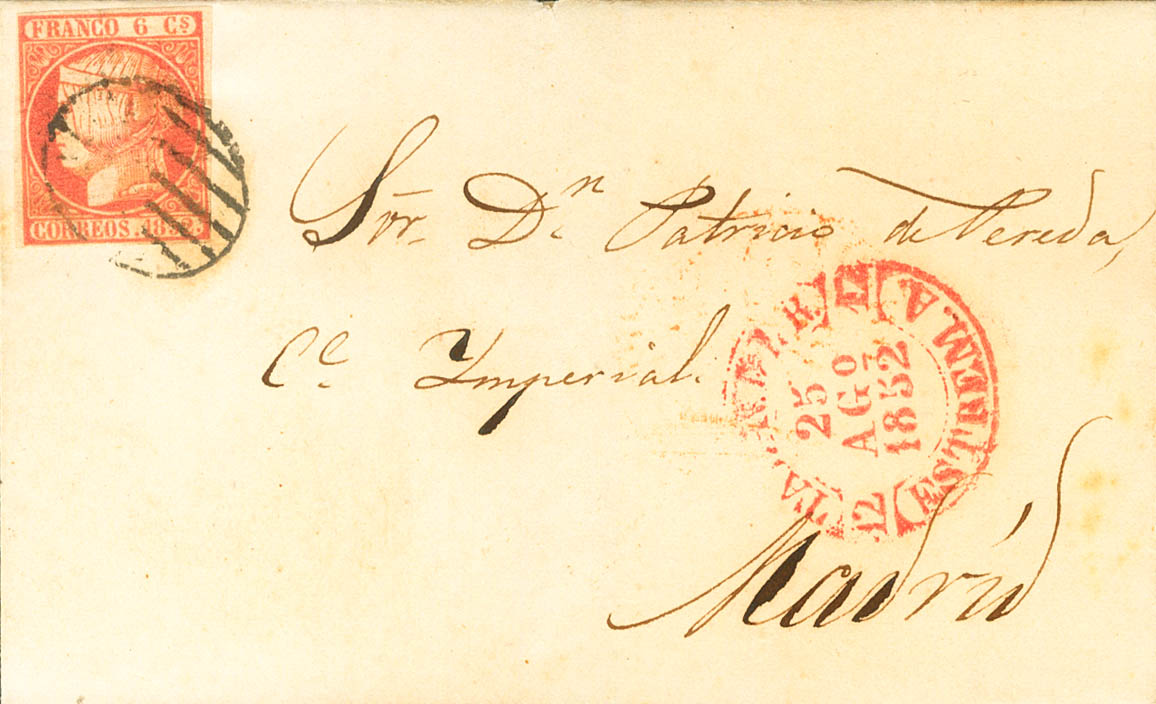 FRANCO 6 Cs
CORREOS. 1852.
Sor. Dn. Patricio de Pereda,
Ce. Imperial.
25
AGO
1852
ESTREM. A.
12
Madrid